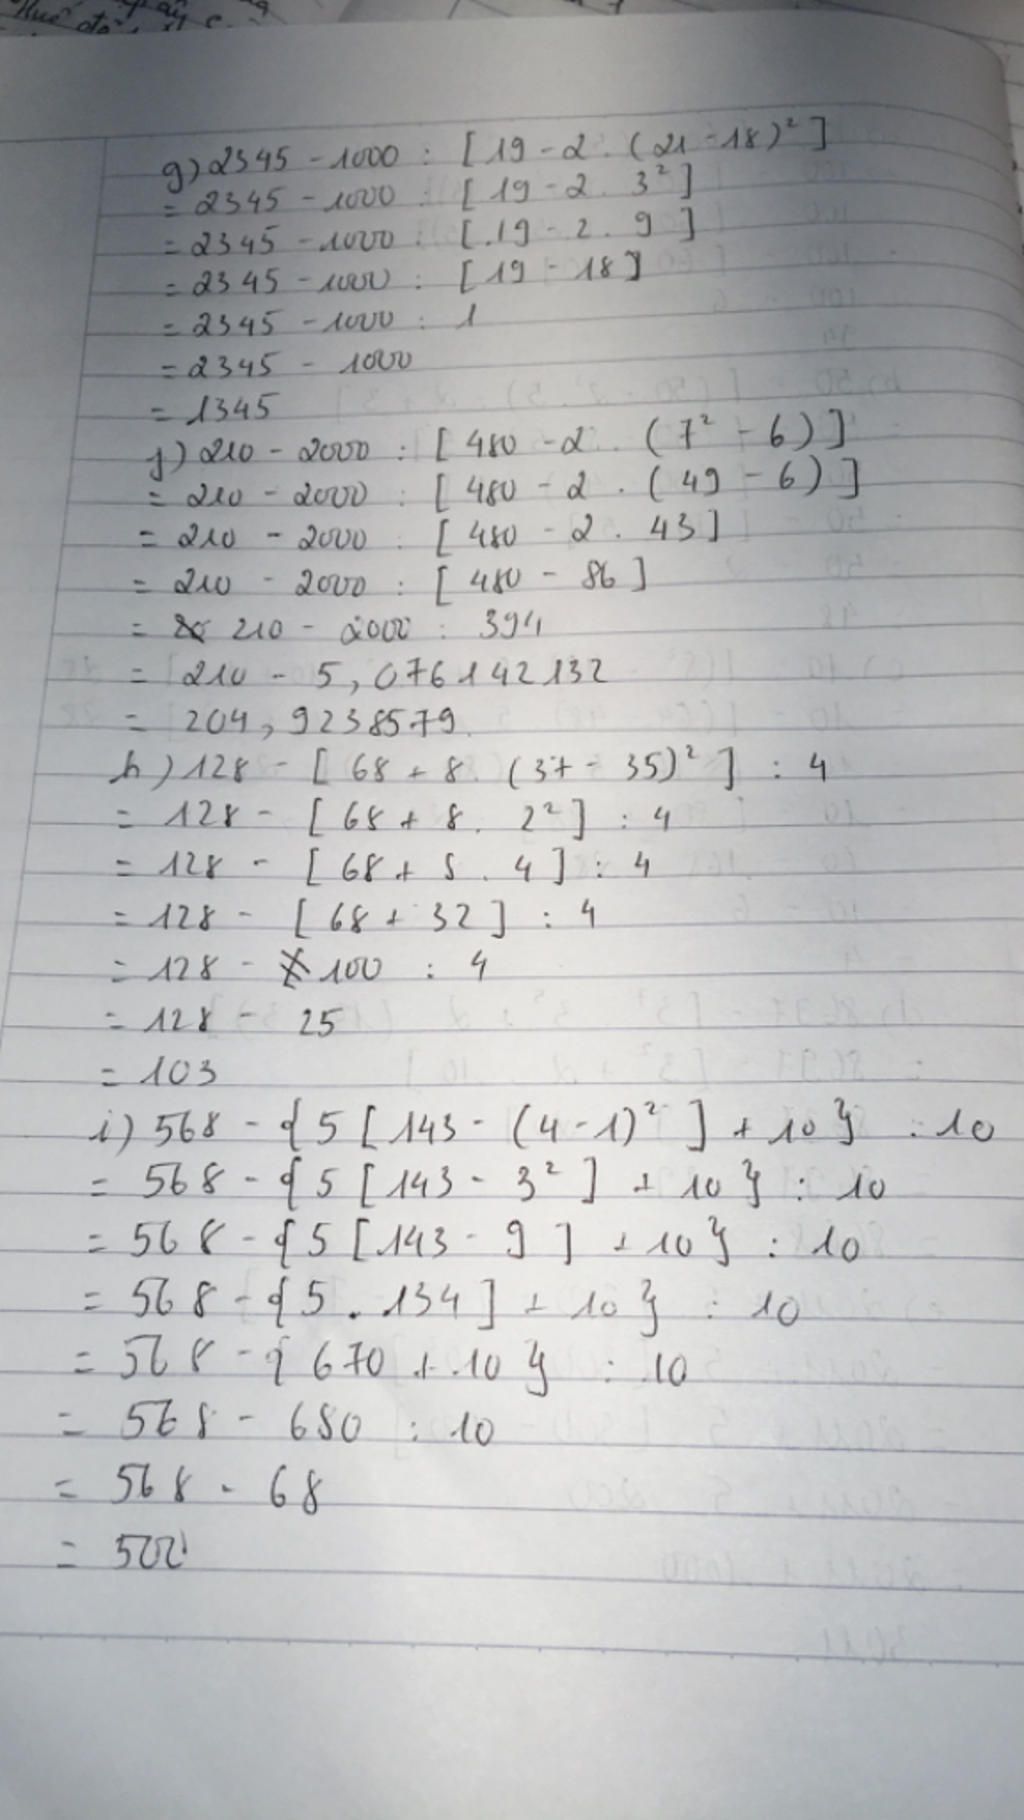 g) 2345 - 1000 : [ 19 - 2 . (21 - 18)² ]
= 2345 - 1000 : [ 19 - 2 . 3² ]
= 2345 - 1000 : [ .19 - 2 . 9 ]
= 2345 - 1000 : [ 19 - 18 ]
= 2345 - 1000 : 1
= 2345 - 1000
= 1345
j) 210 - 2000 : [ 480 - 2 . ( 7² - 6 ) ]
= 210 - 2000 : [ 480 - 2 . ( 49 - 6 ) ]
= 210 - 2000 : [ 480 - 2 . 43 ]
= 210 - 2000 : [ 480 - 86 ]
= 210 - 2000 : 394
= 210 - 5,076142132
= 204,9238579.
h) 128 - [ 68 + 8 . (37 - 35)² ] : 4
= 128 - [ 68 + 8 . 2² ] : 4
= 128 - [ 68 + 8 . 4 ] : 4
= 128 - [ 68 + 32 ] : 4
= 128 - 100 : 4
= 128 - 25
= 103
i) 568 - { 5 [ 143 - (4 - 1)² ] + 10 } : 10
= 568 - { 5 [ 143 - 3² ] + 10 } : 10
= 568 - { 5 [ 143 - 9 ] + 10 } : 10
= 568 - { 5 . 134 ] + 10 } : 10
= 568 - { 670 + 10 } : 10
= 568 - 680 : 10
= 568 - 68
= 500